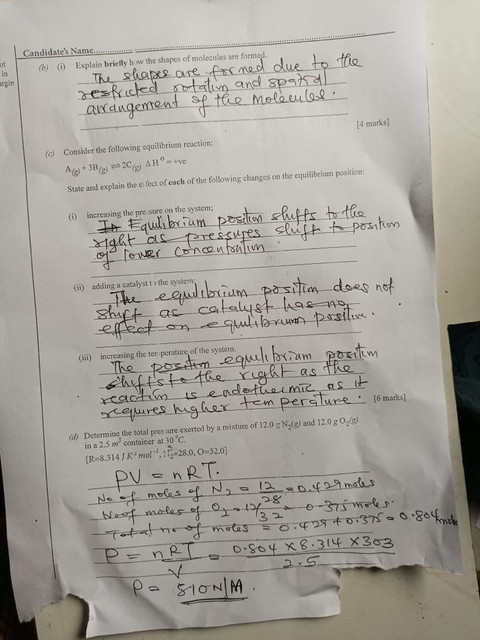 Candidate's Name
ot
in
argin
(b) (i) Explain briefly how the shapes of molecules are formed.
The shapes are formed due to the
restricted rotation and spatial
arrangement of the molecules.
[4 marks]
(c) Consider the following equilibrium reaction:
A(g) + 3B(g) ⇌ 2C(g) ΔH° = +ve
State and explain the effect of each of the following changes on the equilibrium position:
(i) increasing the pressure on the system;
Equilibrium position shifts to the
right as pressures shift to position
of lower concentration
(ii) adding a catalyst to the system;
The equilibrium position does not
shift as catalyst has no
effect on equilibrium position.
(iii) increasing the temperature of the system.
The position equilibrium position
shifts to the right as the
reaction is endothermic as it
requires higher temperature. [6 marks]
(d) Determine the total pressure exerted by a mixture of 12.0 g N₂(g) and 12.0 g O₂(g)
in a 2.5 m³ container at 30 °C.
[R=8.314 J K⁻¹ mol⁻¹, N₂=28.0, O=32.0]
PV = nRT.
No of moles of N₂ = 12/28 = 0.429 moles
No of moles of O₂ = 12/32 = 0.375 moles.
Total no of moles = 0.429 + 0.375 = 0.804 moles
P = nRT/V = 0.804 × 8.314 × 303/2.5
P = 810 N/M.